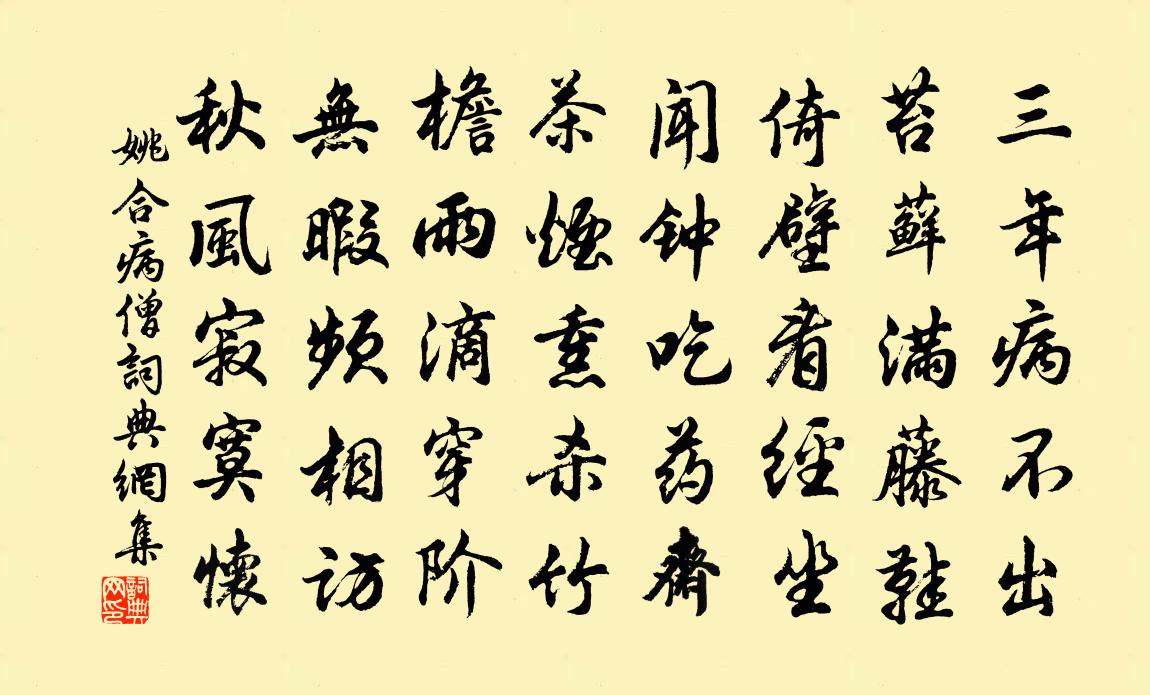 三年病不出
苔藓满藤鞋
倚壁看經坐
闻钟吃药齋
茶煙熏杀竹
檐雨滴穿阶
無暇频相访
秋風寂寞懷
姚合病僧詞典網集
詞典网印